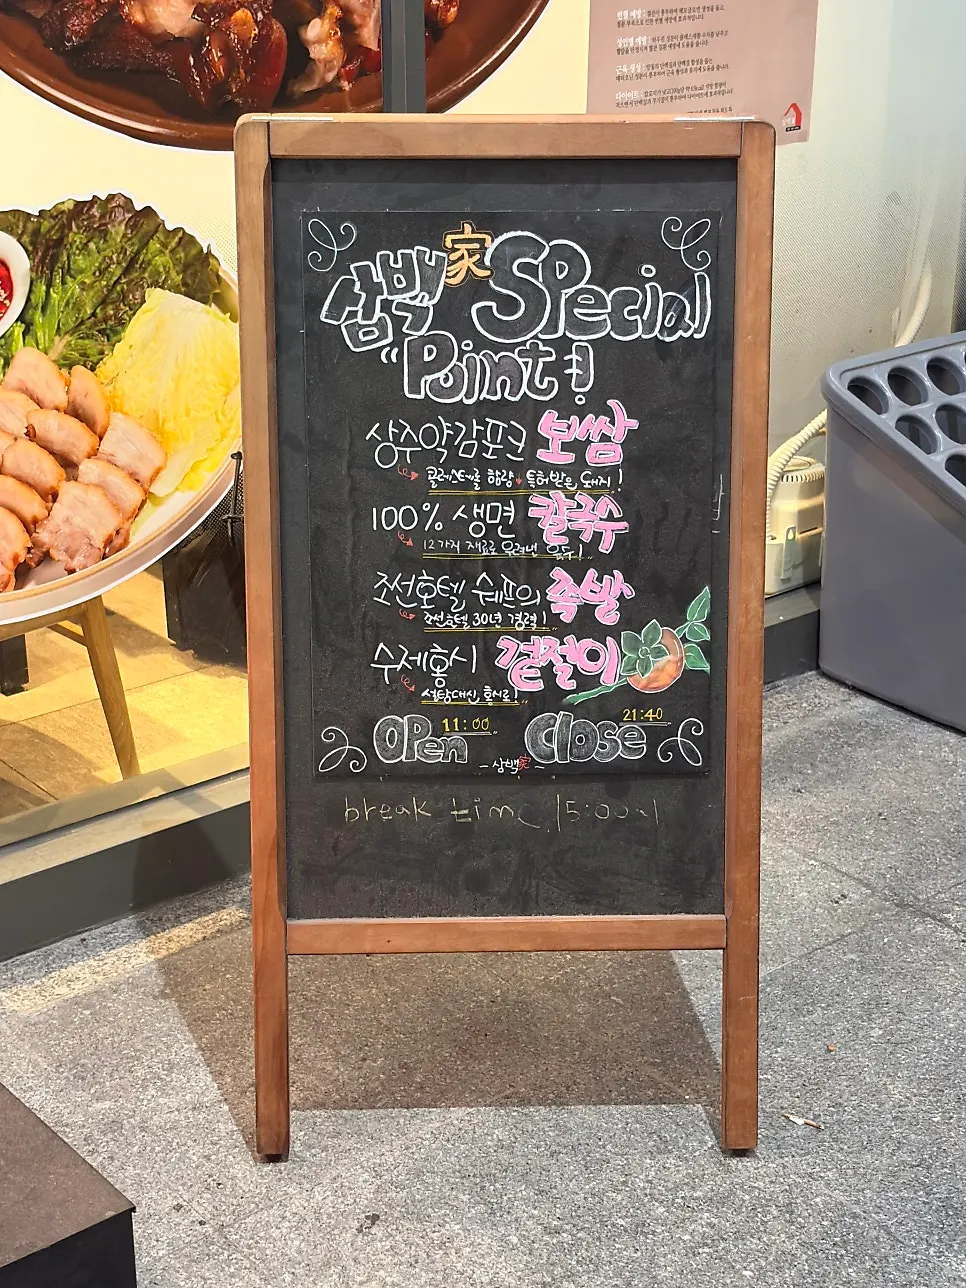 빈혈 예방 :
성인병 예방 :
근육 생성 :
다이어트 :
삼백家 Special
"Point!"
상주약감포크 보쌈
콜레스테롤 함량↓ 특허받은 돼지!
100% 생면 칼국수
12가지 재료로 우려낸 육수!
조선호텔 쉐프의 족발
조선호텔 30년 경력!
수제홍시 겉절이
설탕대신 홍시로!
OPen 11:00 Close 21:40
- 삼백家 -
break time 15:00~1